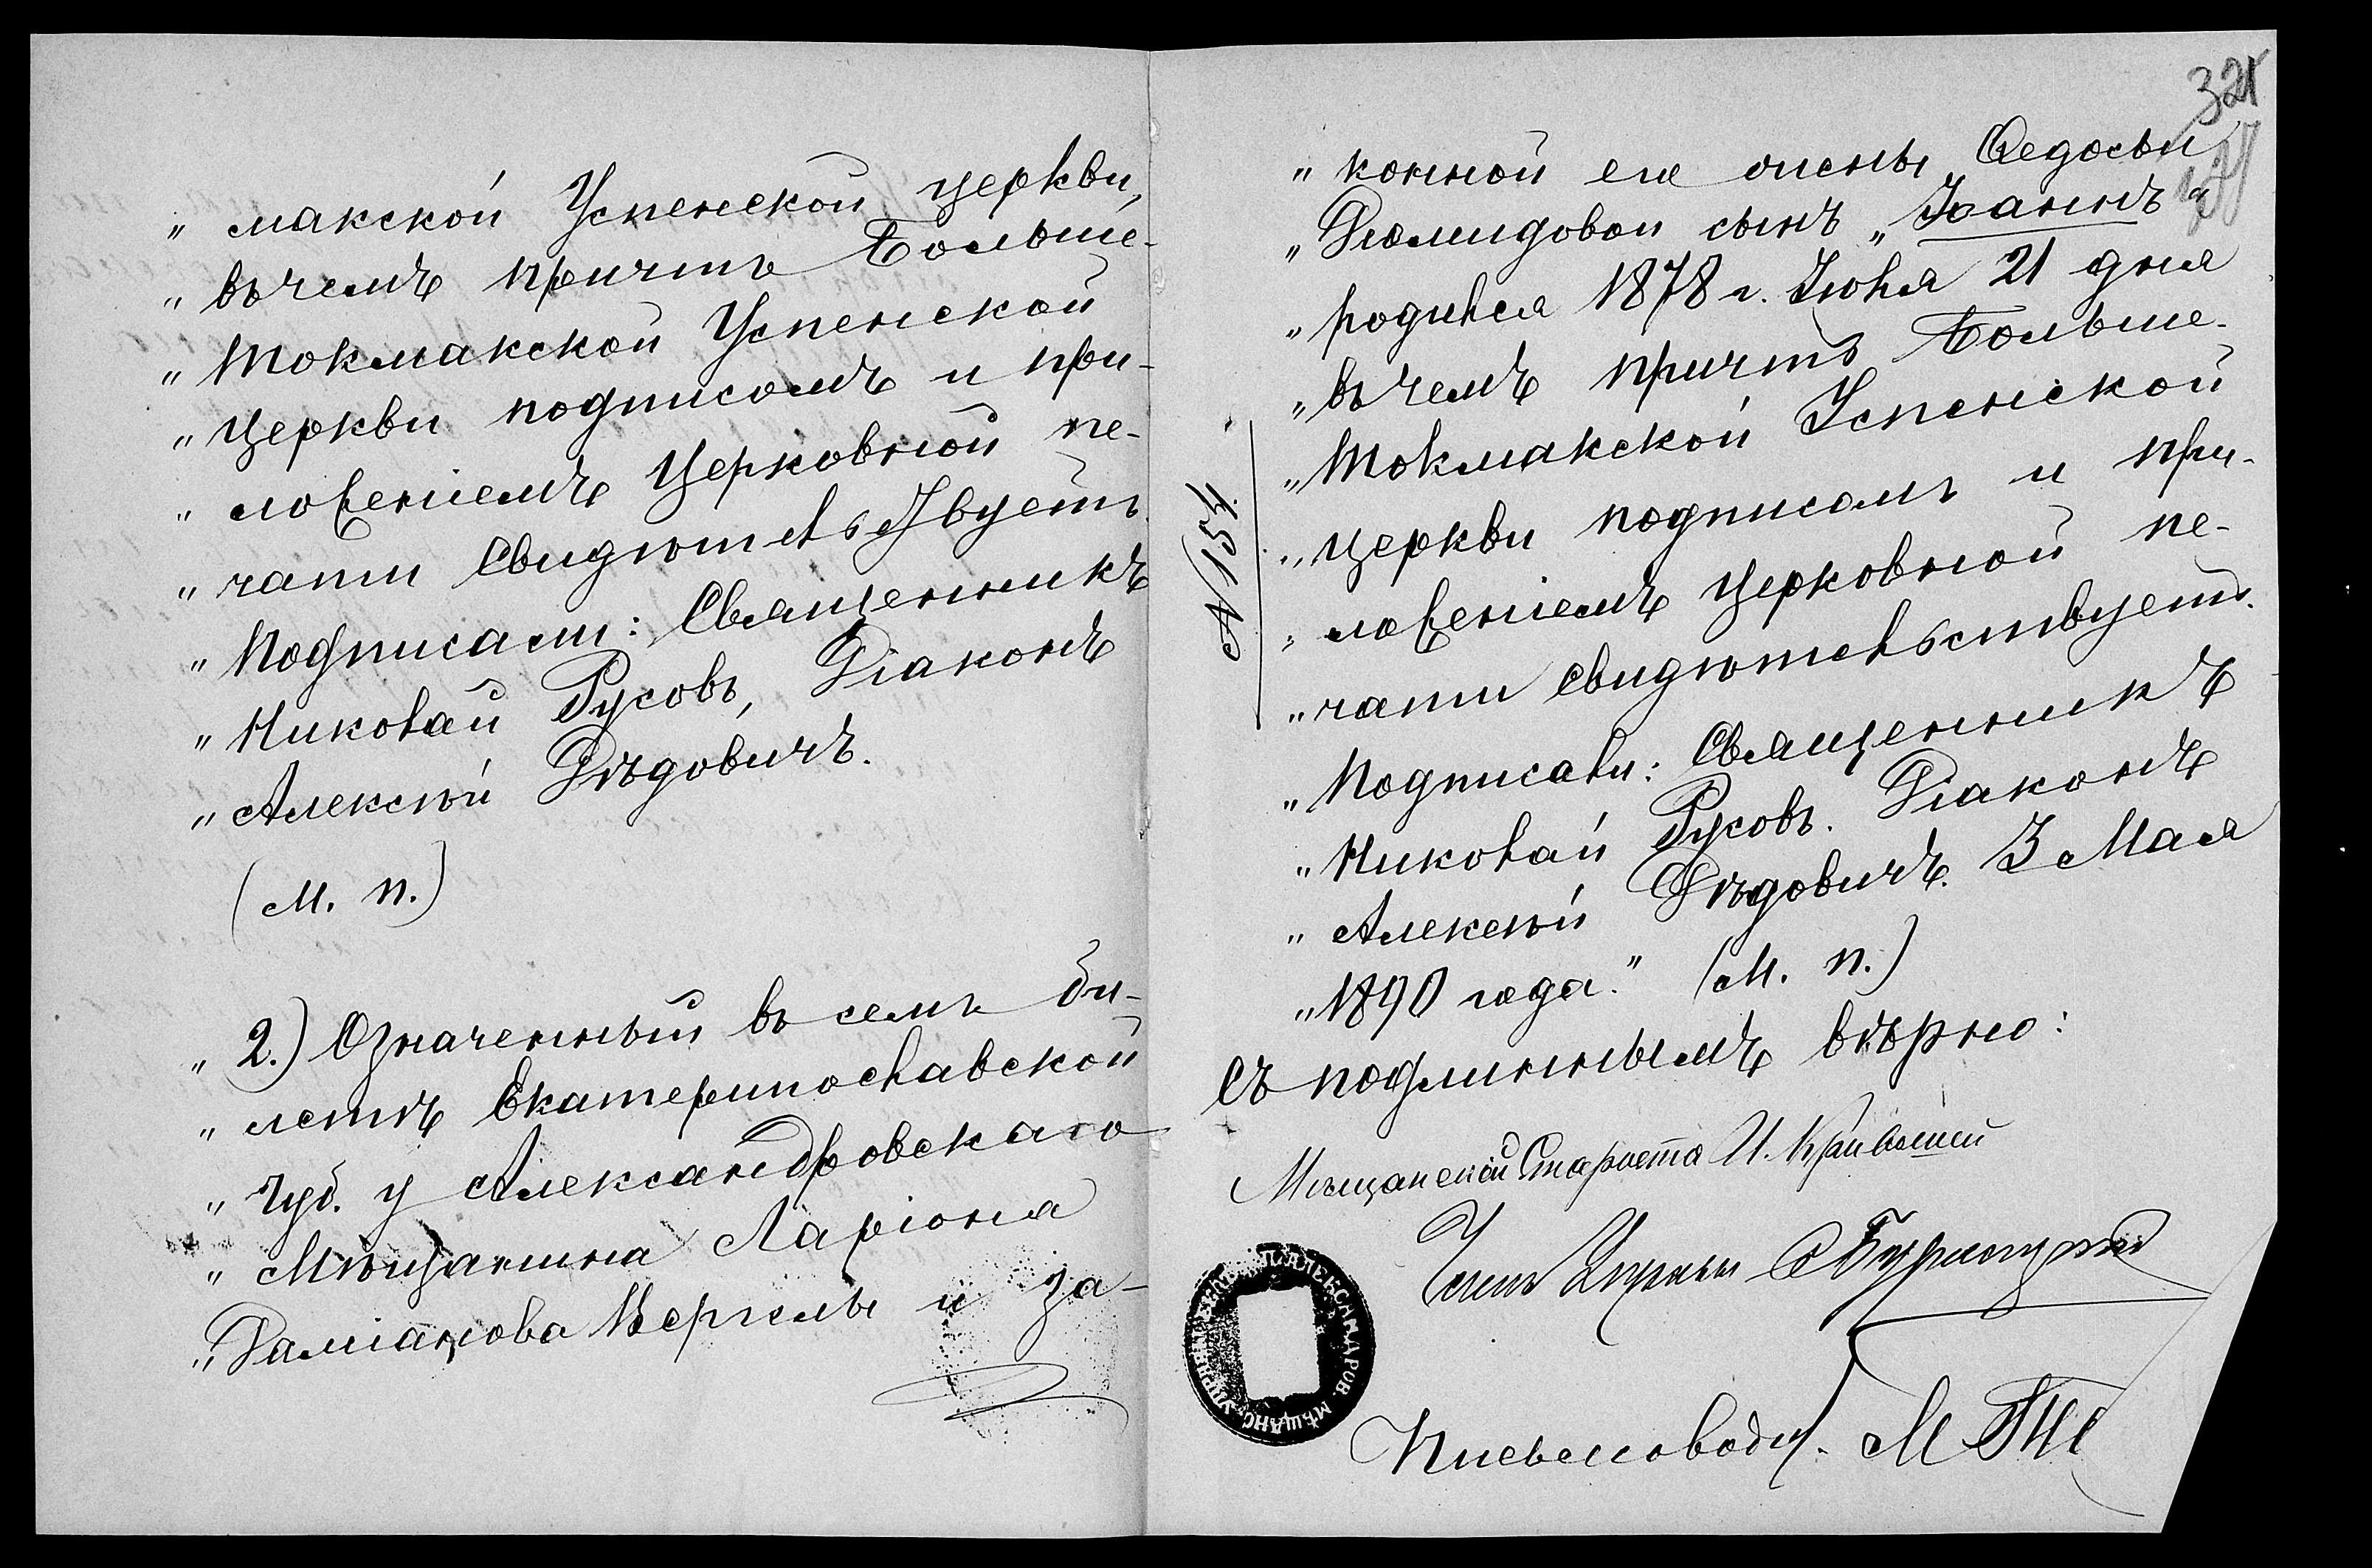 „ макской Успенской церкви,
„ въ чемъ причтъ Больше-
„ Токмакской Успенской
„ Церкви подписомъ и при-
„ ложеніемъ Церковной пе-
„ чати Свидѣтельствуетъ.
„ Подписали: Священникъ
„ Николай Русовъ, Діаконъ
„ Алексѣй Дѣдовичъ.
(М. п.)
„ 2.) Означенный въ семъ би-
„ летѣ Екатеринославской
„ Губ. у Александровскаго
„ Мѣщанина Ларіона
„ Даміанова Кергель и за-
321
„ конной его жены Ѳедосьи
„ Діомидовой сынъ „Іоаннъ“
„ родился 1878 г. Іюля 21 дня
„ въ чемъ причтъ Больше-
„ Токмакской Успенской
„ церкви подписомъ и при-
„ ложеніемъ Церковной пе-
„ чати свидѣтельствуетъ.
„ Подписали: Священникъ
„ Николай Русовъ. Діаконъ
„ Алексѣй Дѣдовичъ. 3 Мая
„ 1890 года.“ (М. п.)
№ 154.
Съ подлиннымъ вѣрно:
Мѣщанскій Староста И.
Членъ Управы
АЛЕКСАНДРОВ. МѢЩАНС. УПРАВЫ
Письмоводит. М